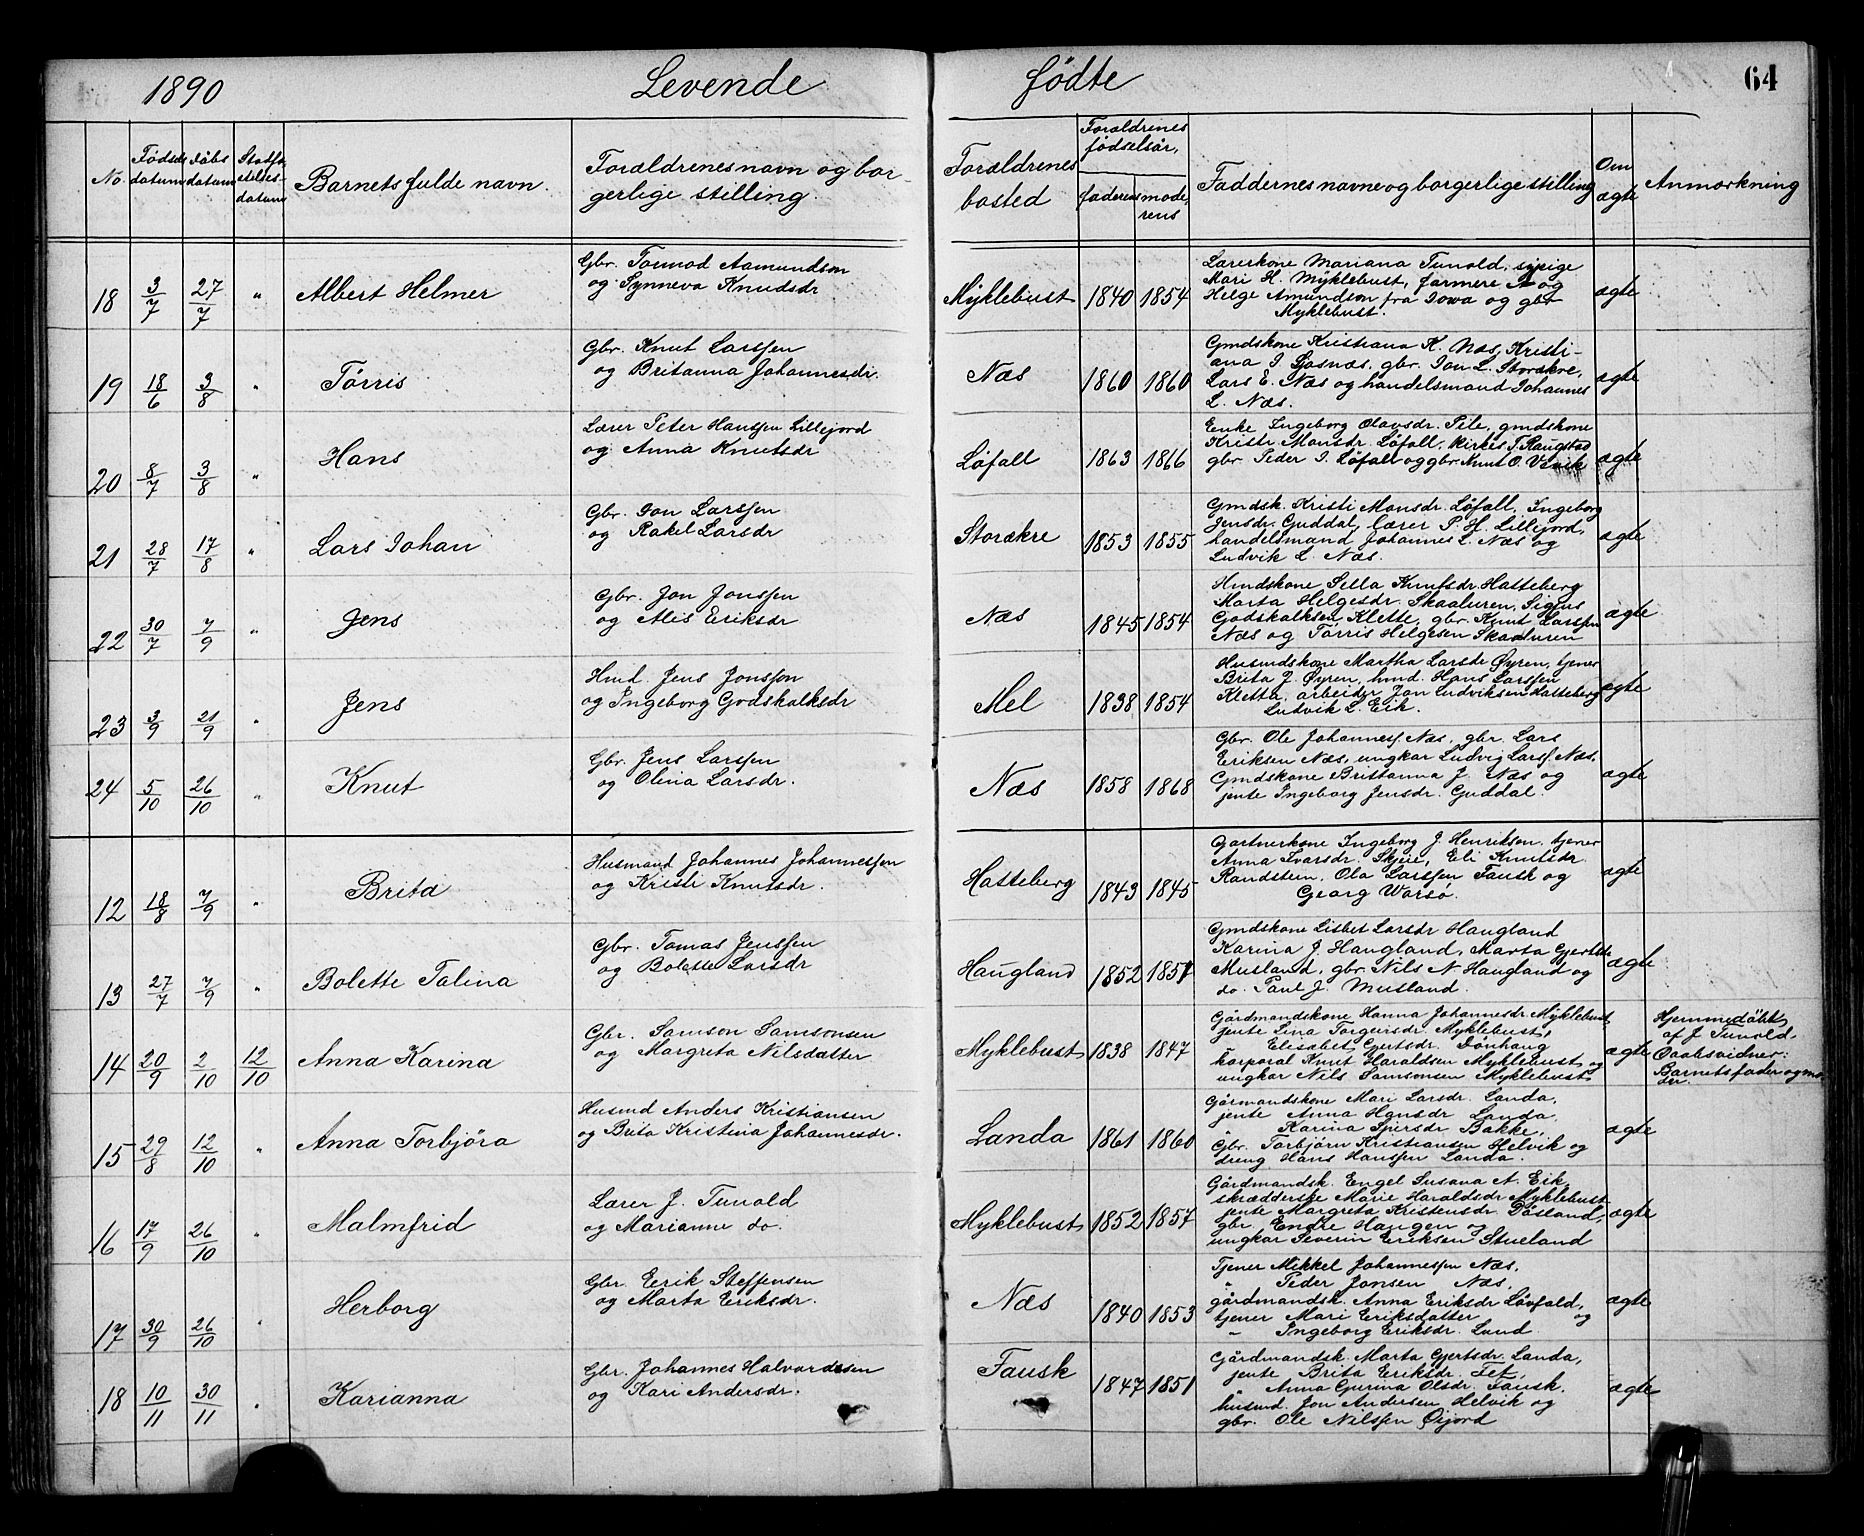 1890 Levende fødte 64
No. Fødsels datum Dåbs datum Stadfæstelses datum Barnets fulde navn. Forældrenes navn og borgerlige stilling. Forældrenes bosted Forældrenes fødselsår, faderens moderens Faddernes navne og borgerlige stilling Om ægte Anmærkning
18 3/7 27/7 " Albert Helmer Gbr. Tormod Aamundson og Synneva Knudsdr Myklebust 1840 1854 Lærerkone Mariana Tunold, sypige ægte
Mari H. Myklebust, farmere og
Helge Amundson fra Iowa og gbr
Myklebust.
19 18/6 3/8 " Tørris Gbr. Knut Larssen og Britanna Johannesdr. Næs 1860 1860 Gmdskone Kristiana K. Næs, Kristi- ægte
ana I. Gjøsnæs, gbr. Jon L. Storækre,
Lars E. Næs og handelsmand Johannes
L. Næs.
20 8/7 3/8 " Hans Lærer Peter Hanssen Lillejord og Anna Knutsdr Løfall 1863 1866 Enke Ingeborg Olavsdr. Tele, gmdskone ægte
Kristi Monsdr. Løfall, Kirkes. T. Raugstad
gbr. Peder I. Løfall og gbr. Knut O. Vevik
21 28/7 17/8 " Lars Johan Gbr. Jon Larssen og Rakel Larsdr Storækre 1853 1855 Gmdsk. Kristi Monsdr. Løfall, Ingeborg ægte
Jensdr. Guddal, lærer P. H. Lillejord,
handelsmand Johannes L. Næs og
Ludvik L. Næs.
22 30/7 7/9 " Jens Gbr. Jon Jonssen og Alis Eriksdr Næs 1845 1854 Hmdskone Sella Knutsdr. Hatteberg ægte
Marta Helgesdr. Skaaluren, Sigus
Godskalksen Klette, gbr. Knut Larssen
Næs og Tørris Helgesen Skaaluren
23 3/9 21/9 " Jens Hmd. Jens Jonsson og Ingeborg Godskalksdr Mel 1838 1854 Husmdskone Martha Larsdr Øyren, tjener ægte
Brita J. Øyren, hmd. Hans Larssen
Kletta, arbeider Jon Ludviksen Hatteberg
Ludvik L. Eik.
24 5/10 26/10 " Knut Gbr. Jens Larssen og Olina Larsdr. Næs 1858 1868 Gbr. Ole Johanness. Næs, gbr. Lars ægte
Eriksen Næs, ungkar Ludvig Larss. Næs,
Gmdskone Brittanna J. Næs og
jente Ingeborg Jensdr. Guddal.
12 18/8 7/9 " Brita Husmand Johannes Johannessen og Kristi Knutsdr. Hatteberg 1843 1845 Gartnerkone Ingeborg J. Henriksen, tjener ægte
Anna Ivarsdr. Skjeie, Eli Knutsdr.
Randsteen, Ola Larssen Fausk og
Georg Warsø.
13 27/7 7/9 " Bolette Talina Gbr. Tomas Jenssen og Bolette Larsdr Haugland 1852 1857 Gmdskone Lisbet Larsdr Haugland ægte
Karina J. Haugland, Marta Gjertsdr.
Musland, gbr. Nils N Haugland og
do. Paul J. Musland.
14 20/9 2/10 12/10 Anna Karina Gbr. Samson Samsonsen og Margreta Nilsdatter Myklebust 1838 1847 Gårdmandskone Hanna Johannesdr. Myklebust ægte Hjemmedøbt
jente Lina Torgersdr. Myklebust, af J Tunold.
" Elisabet Gjertsdr. Dönhaug Daabsvidner:
korporal Knut Haraldsen Myklebust og Barnets fader og mo-
ungkar Nils Samsonsen Myklebust der.
15 29/8 12/10 " Anna Torbjøra Husmd Anders Kristiansen og Brita Kristina Johannesdr. Landa 1861 1860 Gårmandskone Mari Larsdr. Landa, ægte
jente Anna Hansdr. Landa,
" Karina Spersdr Bakke,
Gbr. Torbjørn Kristiansen Helvik og
dreng Hans Hanssen Landa.
16 17/9 26/10 " Malmfrid Lærer J. Tunold og Marianne do. Myklebust 1852 1857 Gårdmandsk. Engel Susana A. Eik, ægte
skrædderske Marie Haraldsdr. Myklebust,
jente Margreta Kristensdr. Døsland,
gbr. Endre Haugen og
ungkar Severin Eriksen Stueland
17 30/9 26/10 " Herborg Gbr. Eerik Steffensen og Marta Eriksdr. Næs 1840 1853 Tjener Mikkel Johannessen Næs, ægte
" Peder Jonsen Næs,
gårdmandsk. Anna Eriksdr Løvfald,
tjener Mari Eriksdatter og
" Ingeborg Eriksdr. Lund
18 10/11 30/11 " Karianna Gbr. Johannes Halvordssen og Kari Andersdr. Fausk 1847 1851 Gårdmandsk. Marta Gjertsdr. Landa, ægte
jente Brita Eriksdr. Tet,
" Anna Gurina Olsdr. Fausk.
husmd. Jon Andersen Helvik og
gbr. Ole Nilssen Øijord